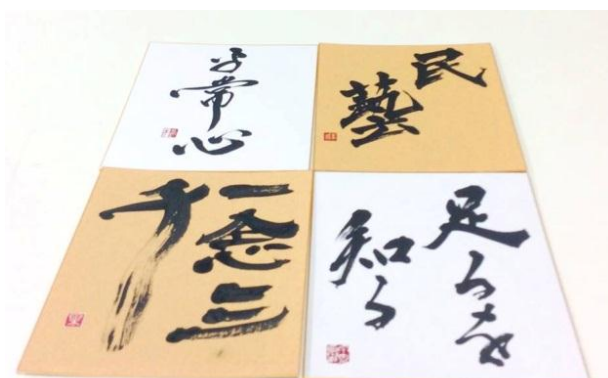 平常心
民
藝
一念三
千
足るを
知る